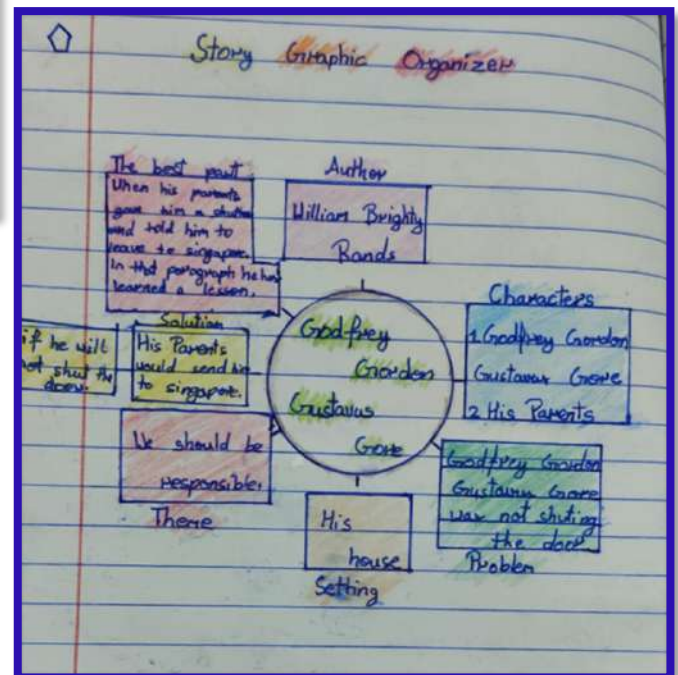 Story Graphic Organizer
The best part
When his parents
gave him a shutter
and told him to
leave to singapore.
In that paragraph he has
learned a lesson.
Author
William Brighty
Rands
Characters
1 Godfrey Gordon
Gustavus Gore
2 His Parents
Solution
His Parents
would send him
to singapore.
if he will
not shut the
door.
Godfrey
Gordon
Gustavus
Gore
We should be
responsible.
Theme
His
house
Setting
Godfrey Gordon
Gustavus Gore
was not shuting
the door
Problem